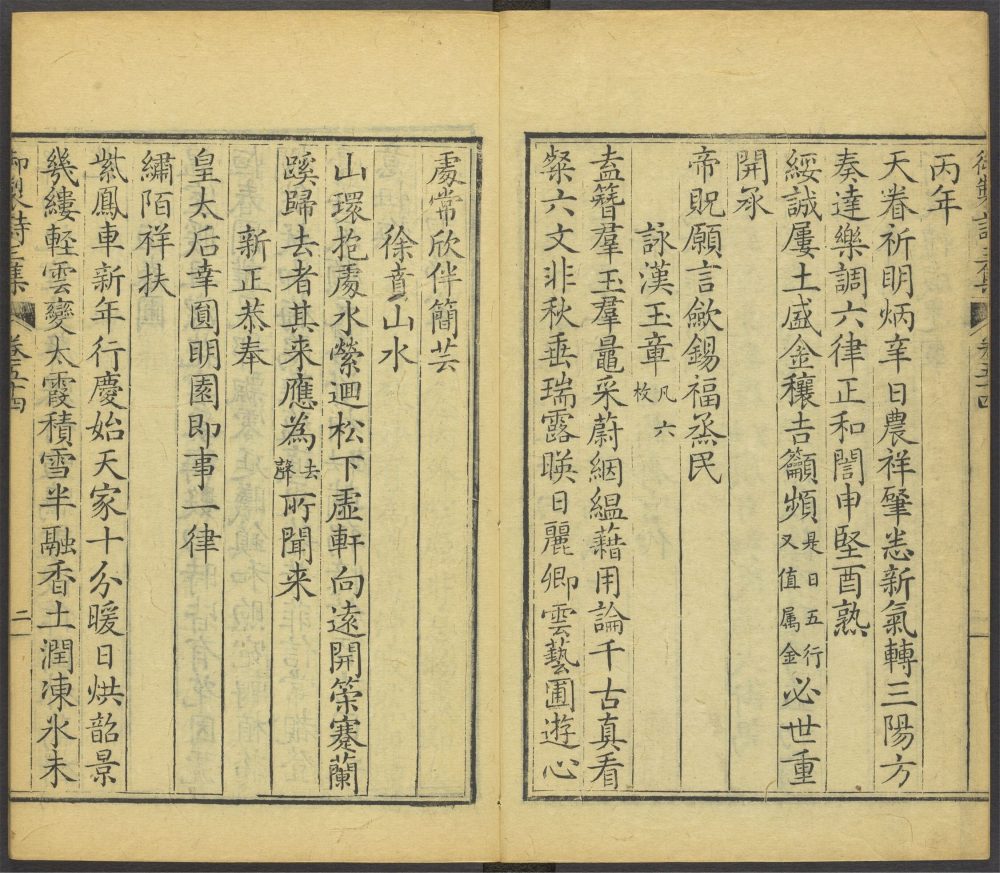 御製詩二集 卷五十四
丙年
天眷祈明炳辛日農祥肇恙新氣轉三陽方
奏達樂調六律正和誾申堅酉熟
綏誠屢土盛金穰吉籲頻是日五行又值属金必世重
開承
帝貺願言歛錫福烝民
詠漢玉章凡六枚
盍簪羣玉羣鼂采蔚絪緼藉用論千古真看
粲六文非秋垂瑞露暎日麗卿雲藝圃遊心
處常欣伴簡芸
徐賁山水
山環抱處水縈迴松下虛軒向遠開策蹇蘭
蹊歸去者其来應為去聲所聞来
新正恭奉
皇太后幸圓明園即事一律
繡陌祥扶
紫鳳車新年行慶始天家十分暖日烘韶景
幾縷軽雲變太霞積雪半融香土潤凍氷未
御製詩二集 卷五十四 二